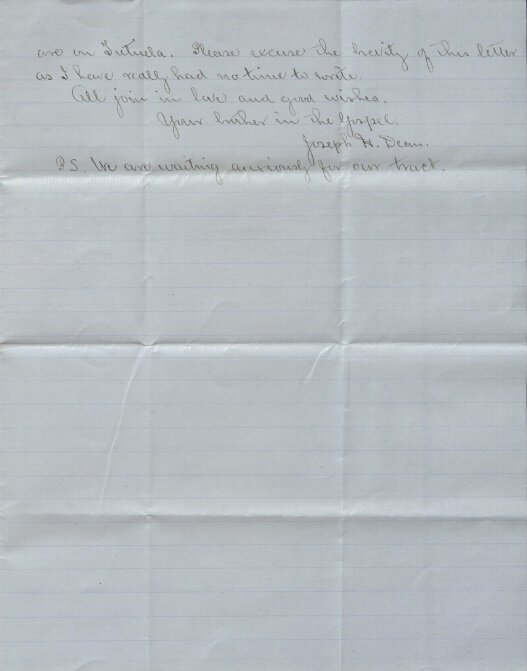 are on Tutuela. Please excuse the brevity of this letter
as I have really had no time to write.
All join in love and good wishes.
Your brother in the Gospel.
Joseph H. Dean.
P.S. We are waiting anxiously for our tract.